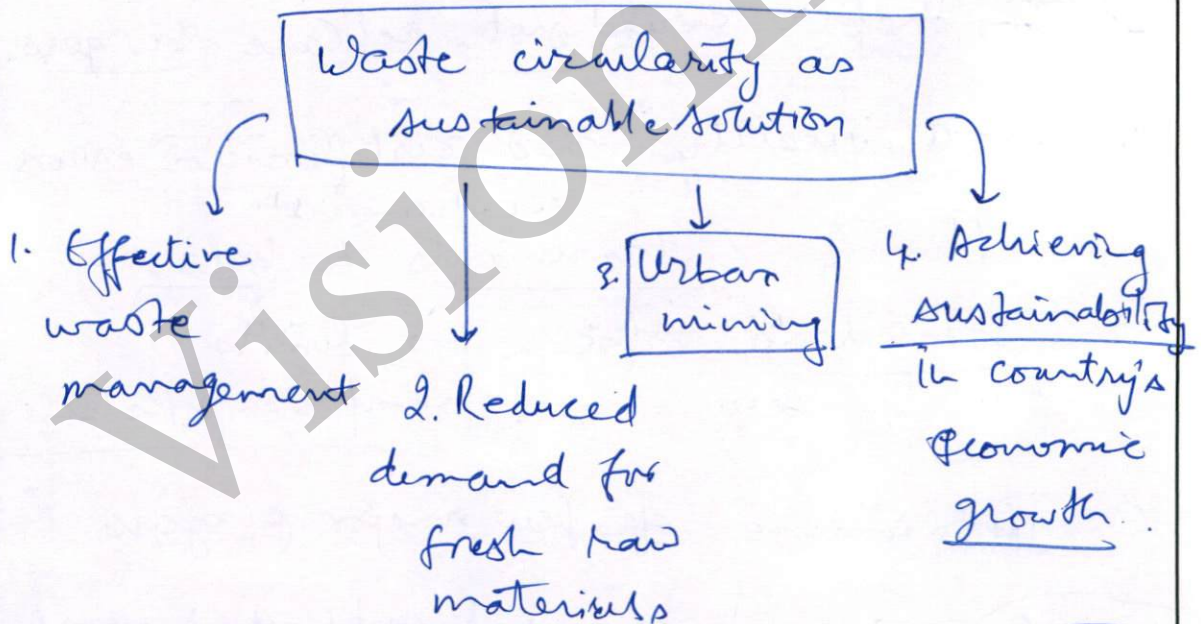 Waste circularity as
sustainable solution
1. Effective
waste
management
2. Reduced
demand for
fresh raw
materials
3. Urban
mining
4. Achieving
sustainability
in country's
economic
growth.
Vision